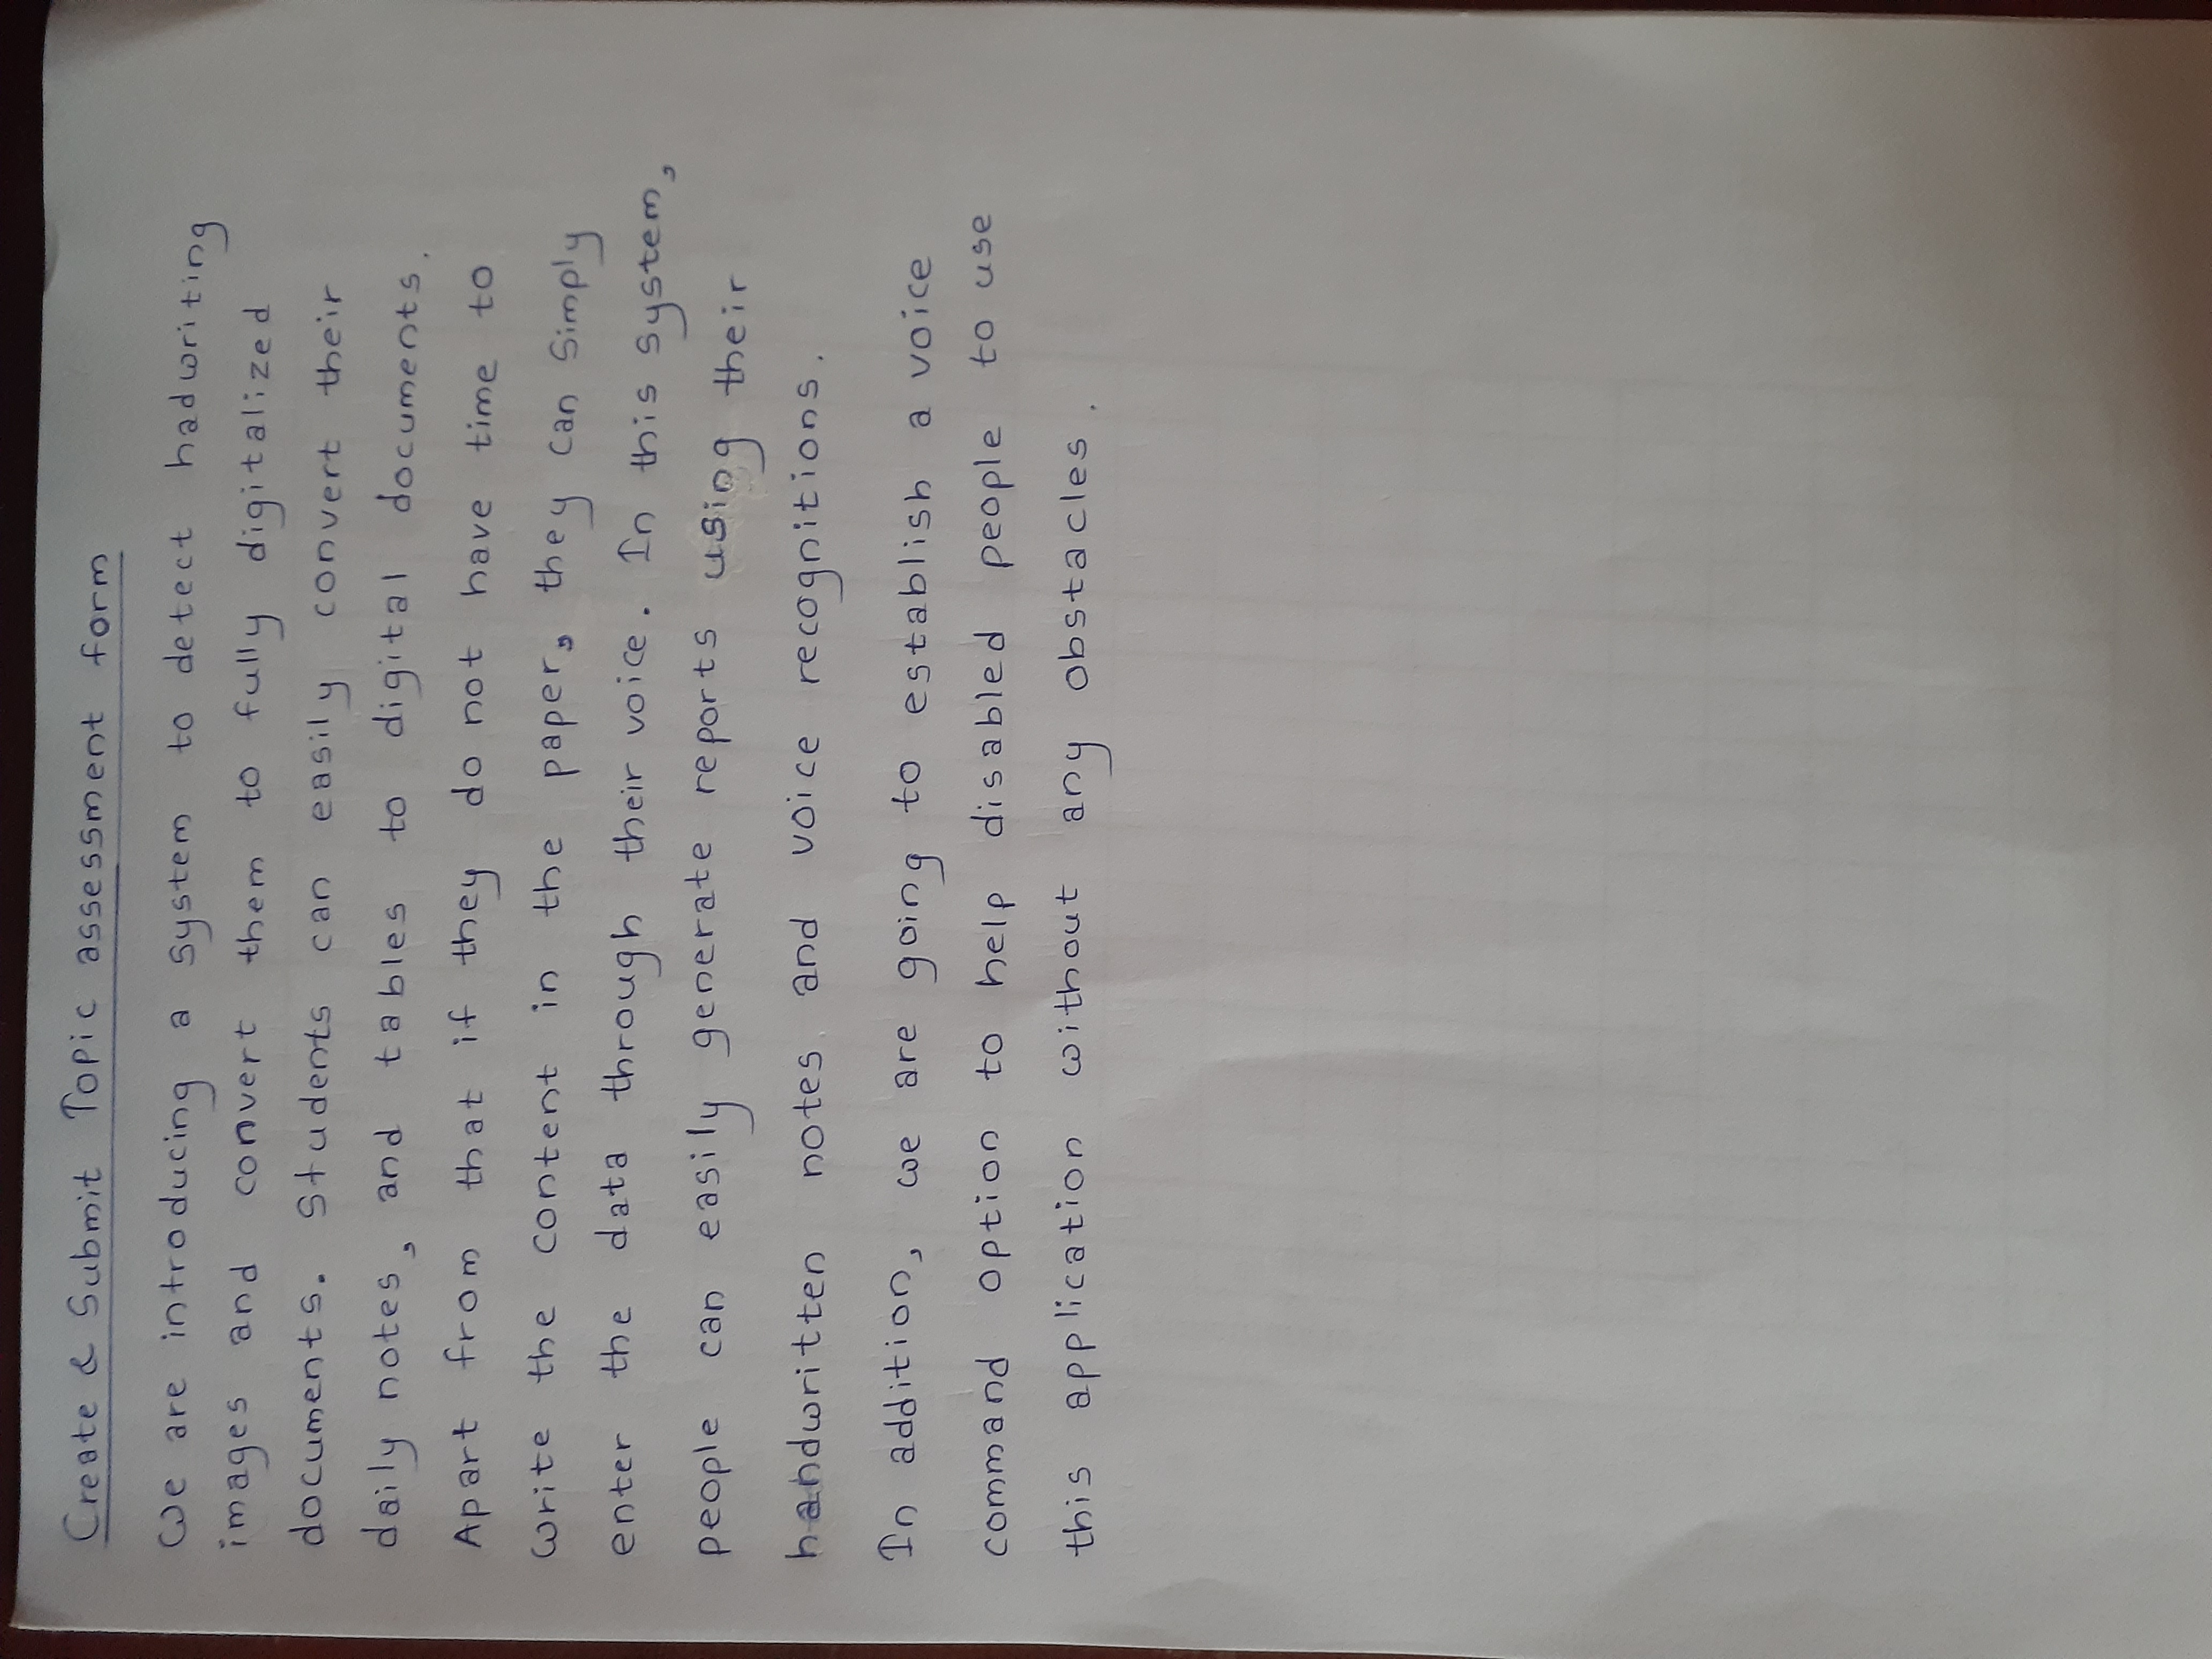 Create & Submit Topic assessment form
We are introducing a system to detect hadwriting
images and convert them to fully digitalized
documents. Students can easily convert their
daily notes, and tables to digital documents.
Apart from that if they do not have time to
write the content in the paper, they can simply
enter the data through their voice. In this system,
people can easily generate reports using their
handwritten notes and voice recognitions.
In addition, we are going to establish a voice
command option to help disabled people to use
this application without any obstacles.